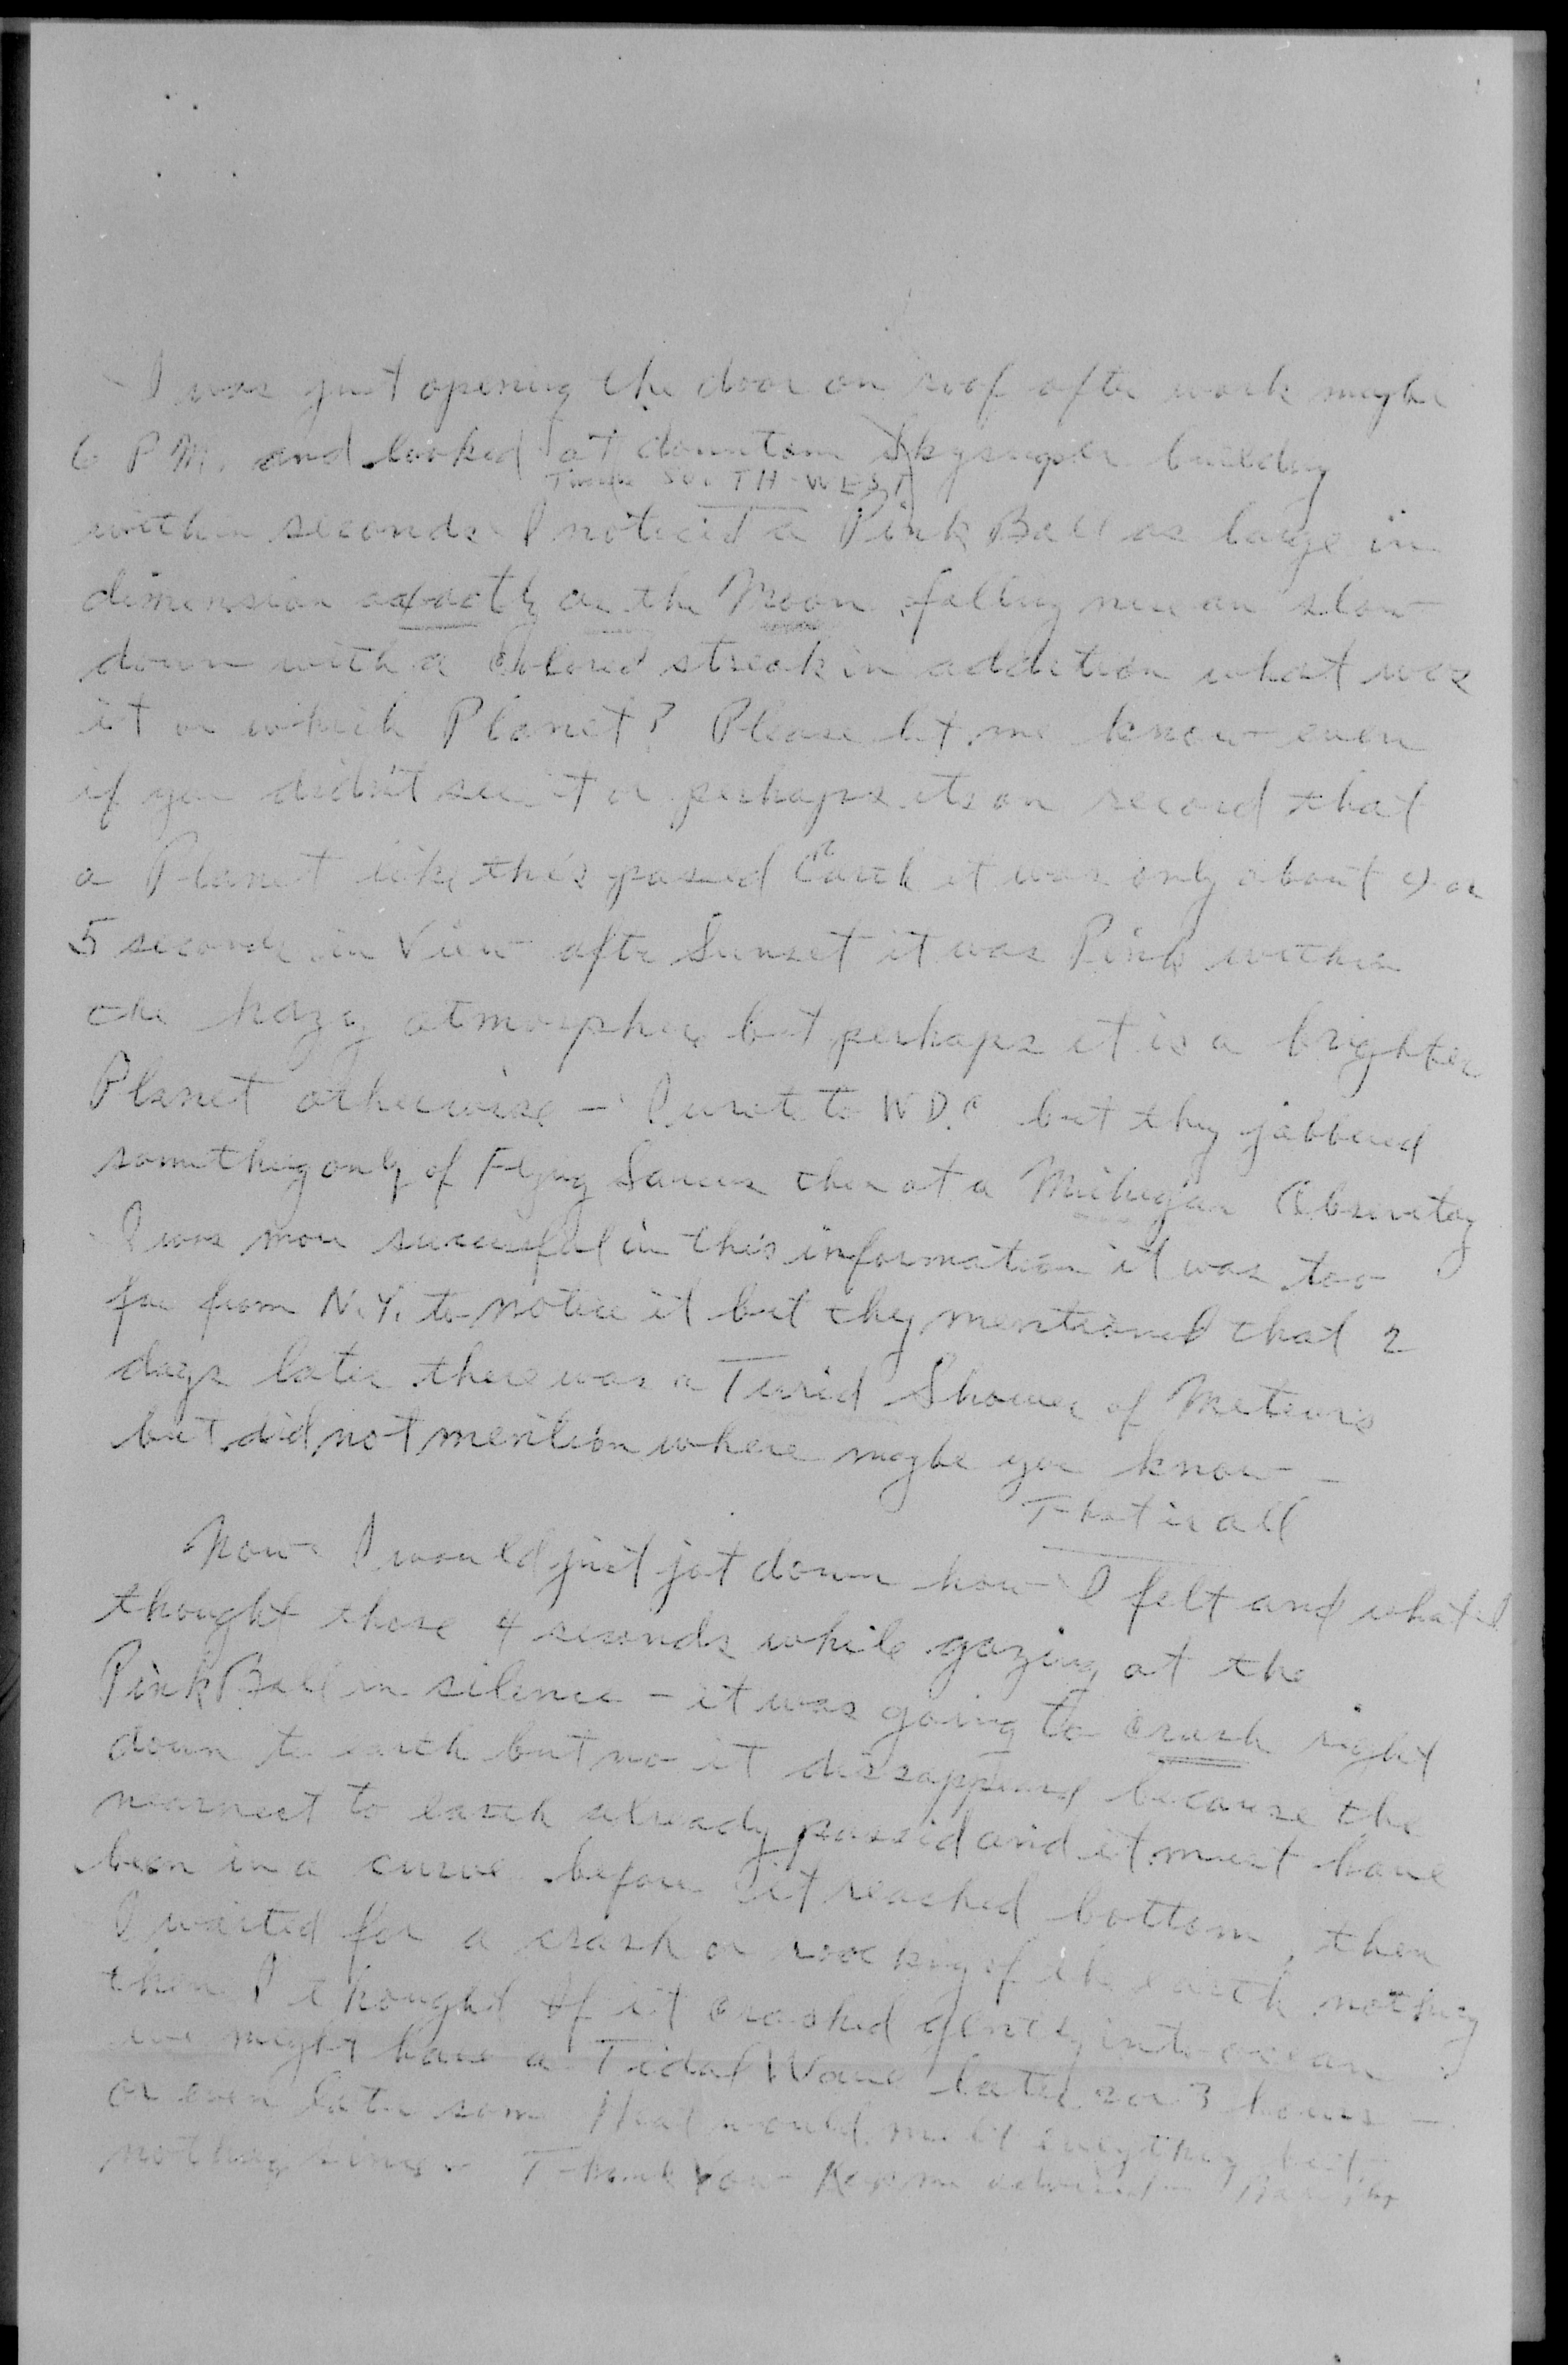 I was just opening the door on roof after work maybe
6 P.M. and looked at downtown Skyscraper building
SOUTH-WEST
within seconds I noticed a Pink Ball as large in
dimension exactly as the Moon falling slow
down with a Colored streak in addition what was
it or which Planet? Please let me know even
if you didn't see it or perhaps its on record that
a Planet like this passed Earth it was only about 4 or
5 seconds in View after Sunset it was Pink within
the hazy atmosphere but perhaps it is a brighter
Planet otherwise - I wrote to W D.C. but they jabbered
something only of Flying Saucer then at a Michigan Observatory
I was more successful in this information it was too
far from N.Y. to notice it but they mentioned that 2
days later there was a Turid Shower of Meteors
but did not mention where maybe you know -
That is all
Now I would just jot down how I felt and what I
thought those 4 seconds while gazing at the
Pink Ball in silence - it was going to crash right
down to earth but no it dissappeared because the
nearnest to earth already passed and it must have
been in a curve before it reached bottom, then
I waited for a crash or rocking of the earth nothing
then I thought if it crashed gently into ocean
we might have a Tidal Wave later 2 or 3 hours -
or even later some Heat would melt everything but
nothing since - Thank You - Keep me advised